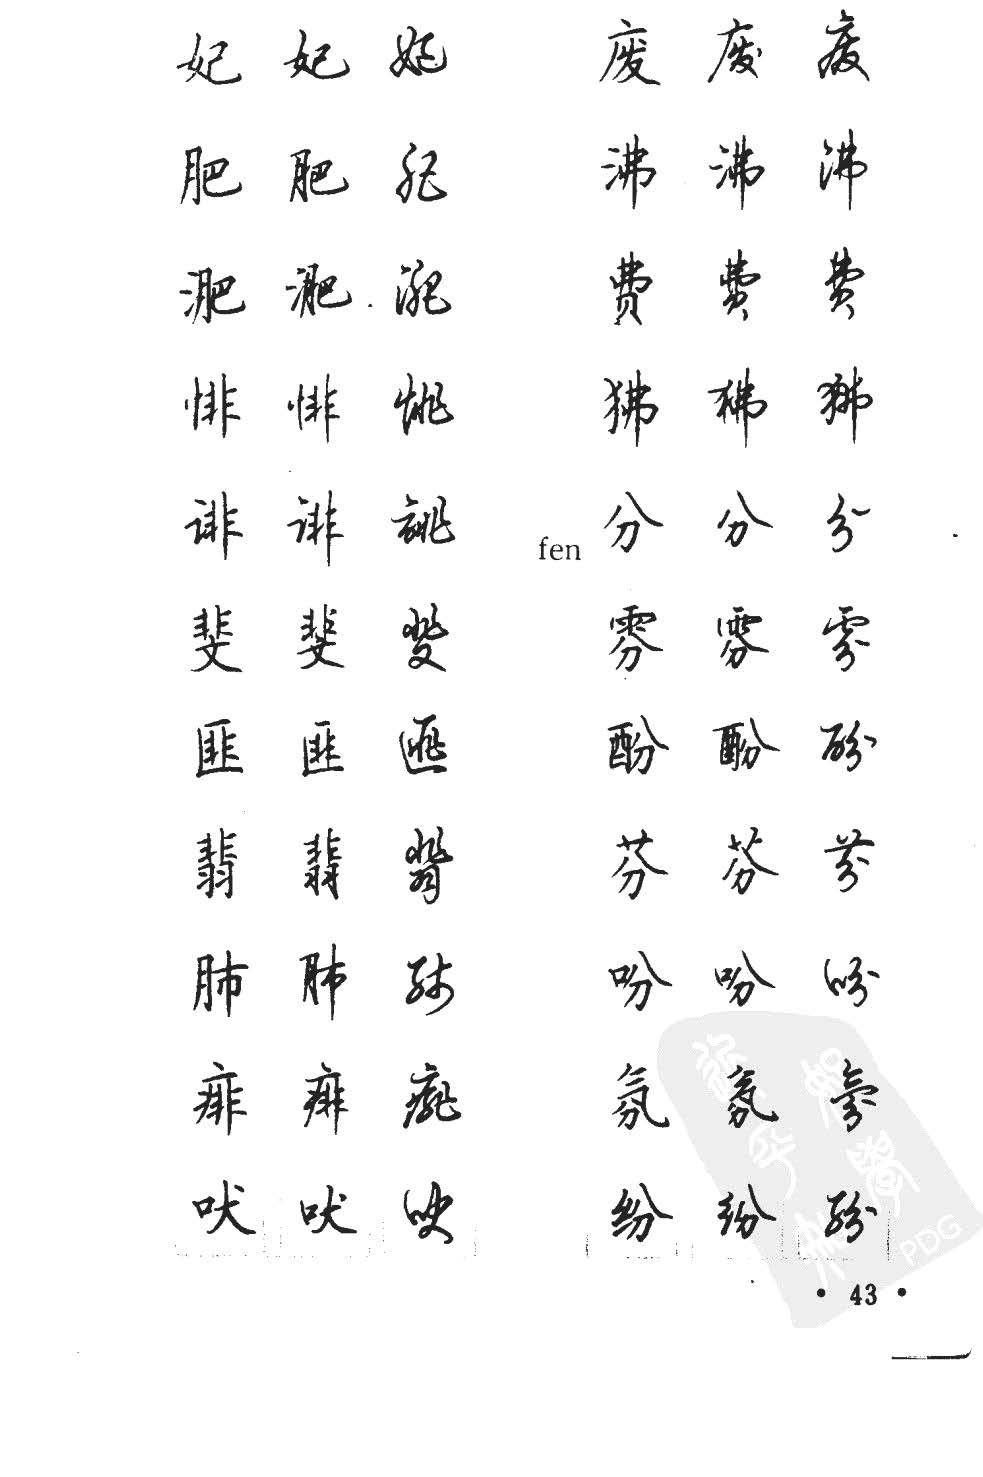 妃 妃 妃
肥 肥 肥
淝 淝 淝
悱 悱 悱
诽 诽 诽
斐 斐 斐
匪 匪 匪
翡 翡 翡
肺 肺 肺
痱 痱 痱
吠 吠 吠
废 废 废
沸 沸 沸
费 费 费
狒 狒 狒
fen 分 分 分
雰 雰 雰
酚 酚 酚
芬 芬 芬
吩 吩 吩
氛 氛 氛
纷 纷 纷
PDG
• 43 •